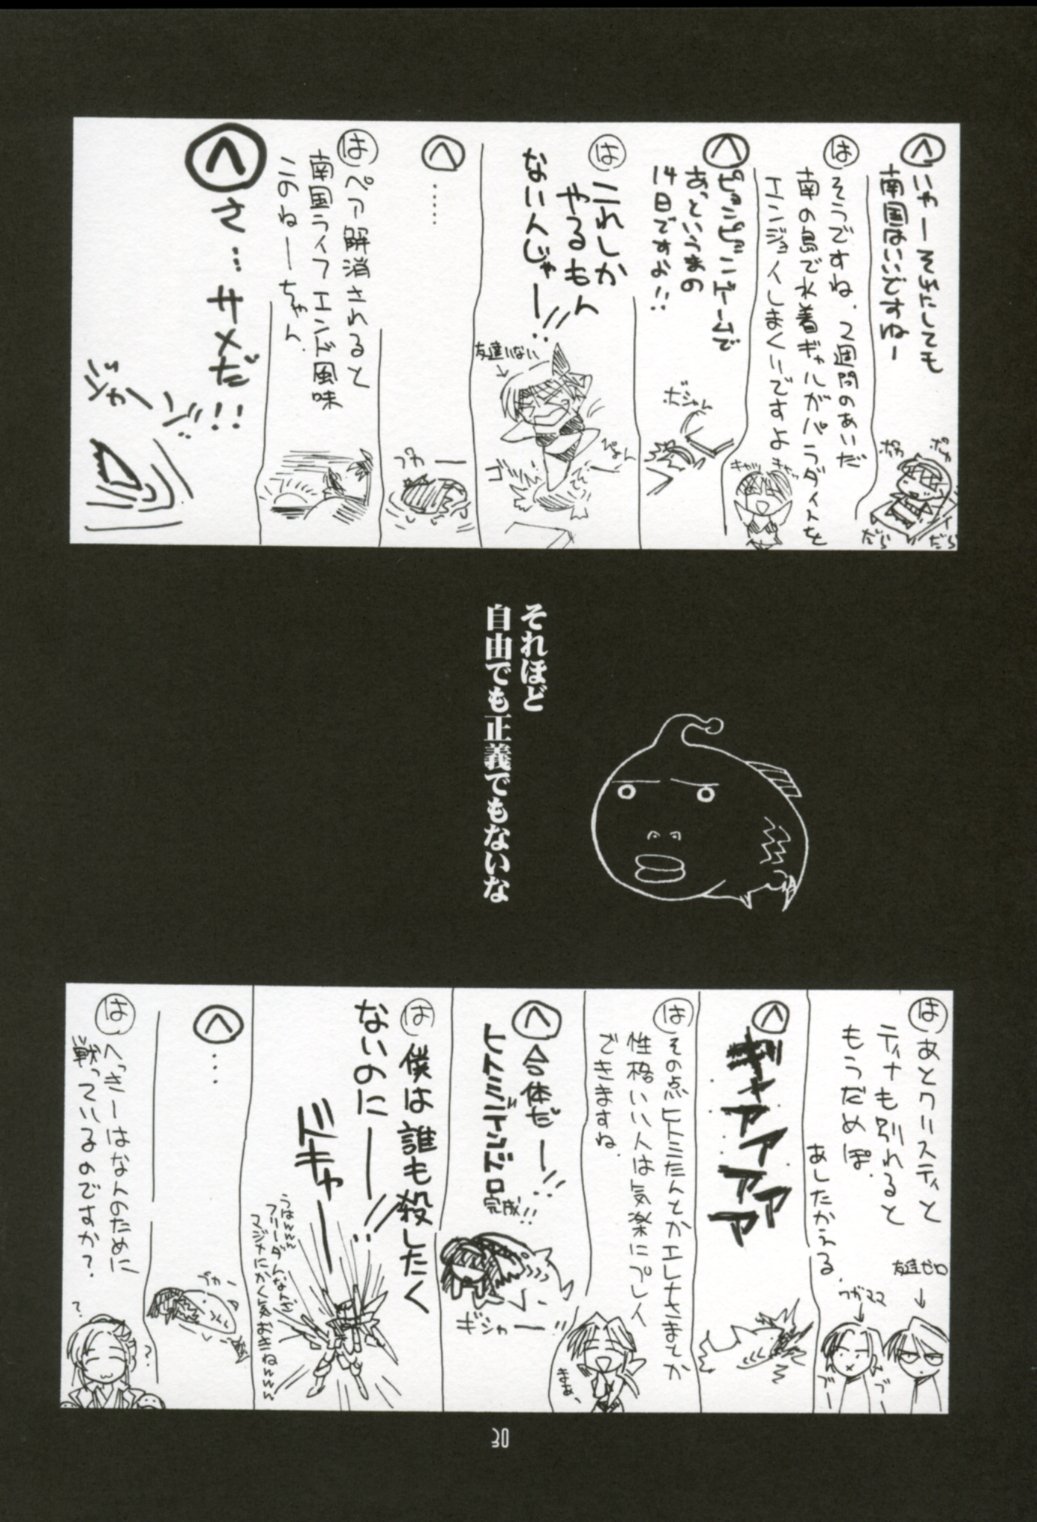 へ
いやーそれにしても
南国はいいですねー
ポワ
ポワ
だら
だら
は
そうですね、2週間のあいだ
南の島で水着ギャルがパラダイスを
エンジョイしまくりですよ
キャッ
キャッ
へ
ピョンピョンゲームで
あっというまの
14日ですよ!!
ボシャん
は
これしか
やるもん
ないんじゃー!!
友達いない
ぴょん
ゴッ
へ
……
プカー
は
ペア解消されると
南国ライフエンド風味
このねーちゃん
へ
さ…サメだ!!
ジャーン!!
それほど
自由でも正義でもないな
は
あとクリスティと
ティナも別れると
もうだめぽ。
あしたかえる。
友達ゼロ
ワガママ
ブ
ブ
へ
ギャアアアアア
は
その点ヒトミたんとかエレナさまとか
性格いい人は気楽にプレイ
できますね。
きゃあ、
へ
合体だー!!
ヒトミデンドロ
完成!!
ギシャー!!
は
僕は誰も殺したく
ないのにーー!!
ドギャーー
うはんん
フリーダムなんぞ
マジでにかく気おきねんんん
へ
…
プカー
は
へっきーはなんのために
戦っているのですか?
?
?
30